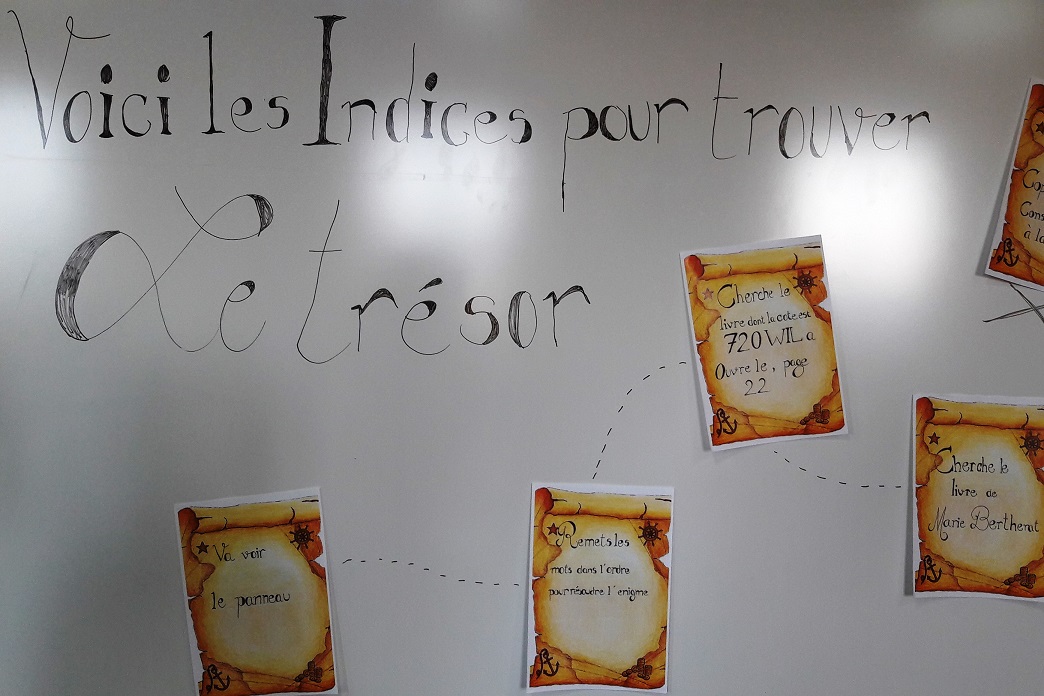 Voici les Indices pour trouver
Le trésor
Va voir
le panneau
Remets les
mots dans l'ordre
pour résoudre l'enigme
Cherche le
livre dont la cote est
720 WIL a
Ouvre le, page
22
Cherche le
livre de
Marie Bertherat
à la